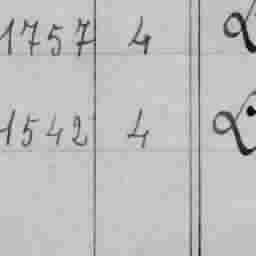 1757 4
1542 4